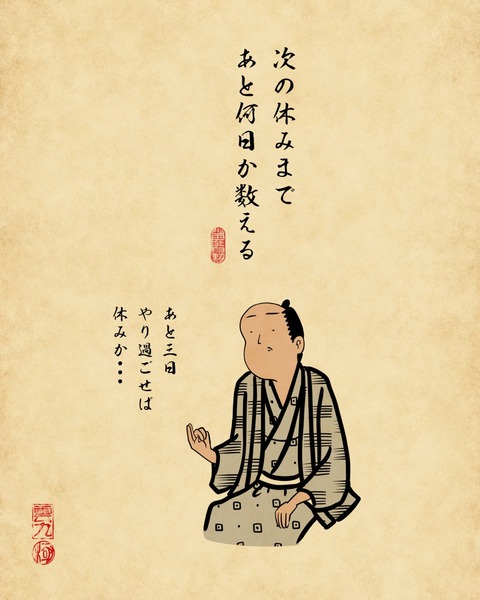 次の休みまで
あと何日か数える
あと三日
やり過ごせば
休みか・・・